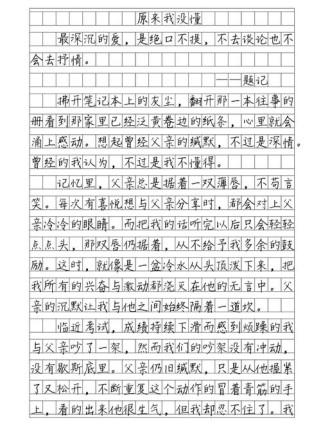 原来我没懂
最深沉的爱，是绝口不提，不去谈论也不
会去抒情。
——题记
拂开笔记本上的灰尘，翻开那一本往事的
册看到那家里已经泛黄卷边的纸条，心里就会
涌上感动。想起曾经父亲的缄默，不过是深情。
曾经的我认为，不过是我不懂得。
记忆里，父亲总是抿着一双薄唇，不苟言
笑。每次有喜悦想与父亲分享时，都会对上父
亲冷冷的眼睛。而把我的话听完以后只会轻轻
点点头，那双唇仍抿着，从不给予我多余的鼓
励。这时，就像是一盆冷水从头顶泼下来，把
我所有的兴奋与激动都浇灭在他的无言中。父
亲的沉默让我与他之间始终隔着一道坎。
临近考试，成绩持续下滑而感到烦躁的我
与父亲吵了一架，然而我们的吵架没有冲动，
没有歇斯底里。父亲仍旧缄默，只是从他握紧
了又松开，不断重复这个动作的冒着青筋的手
上，看的出来他很生气，但我却忍不住了。我